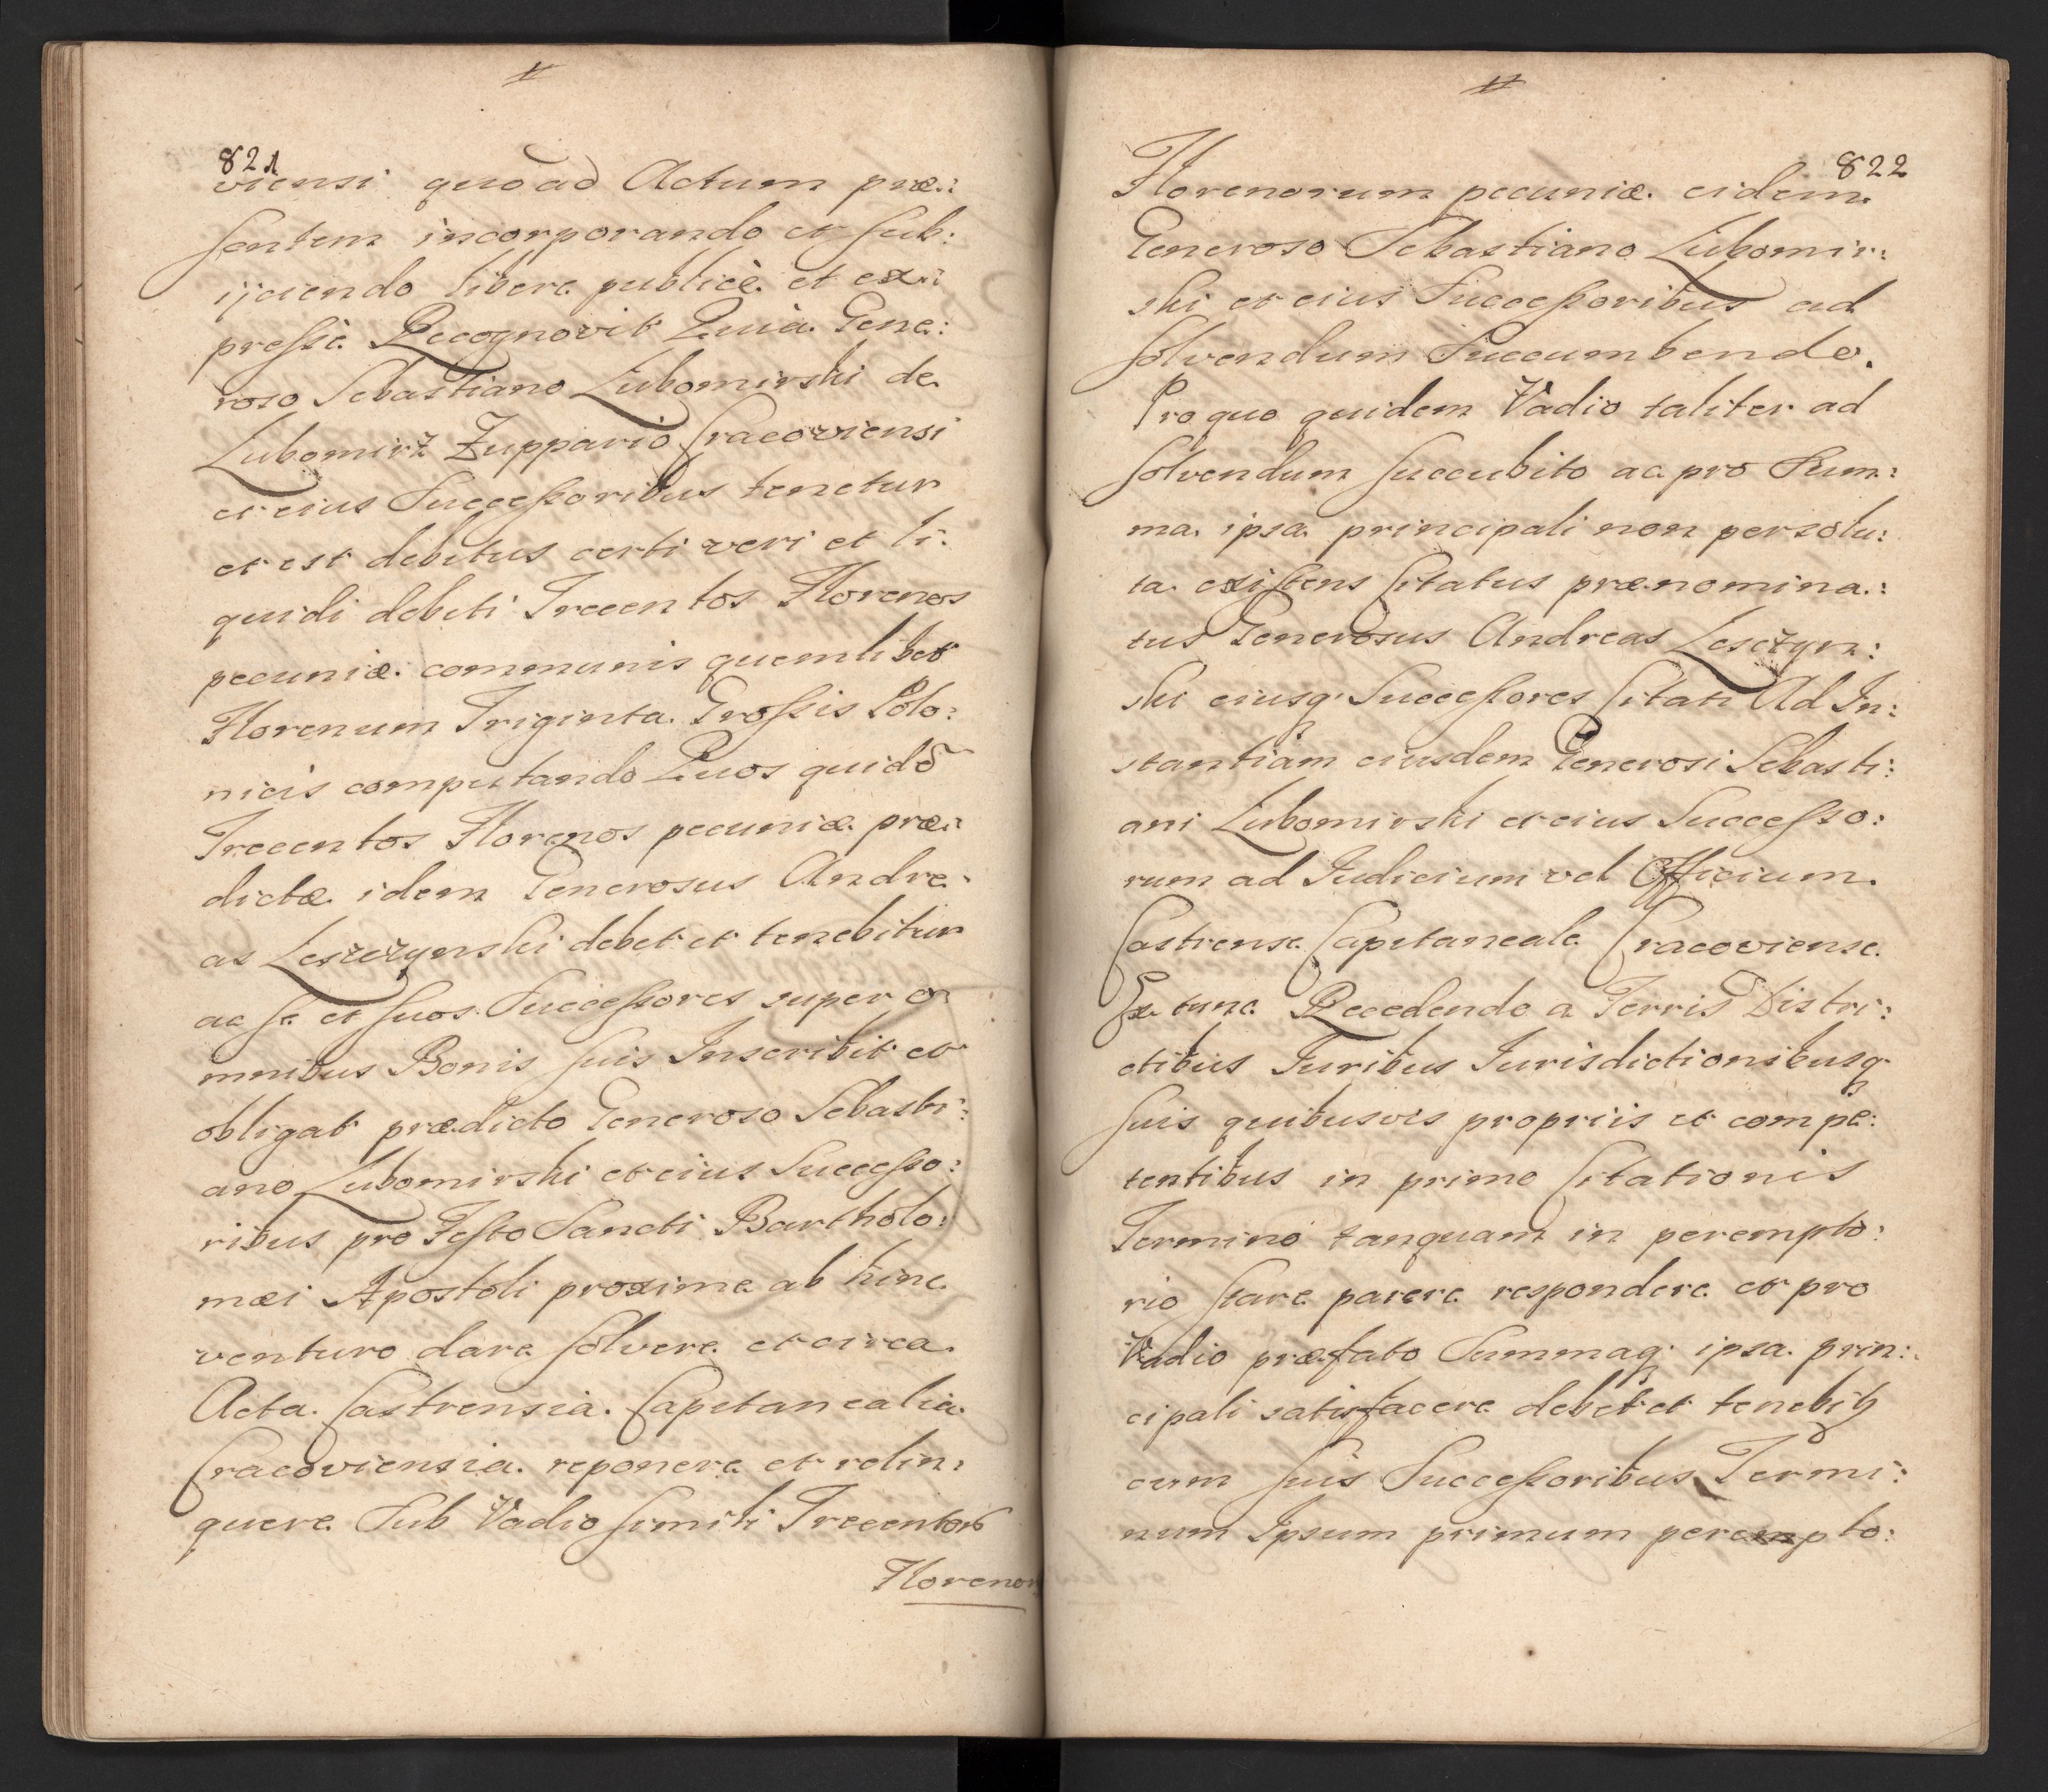 821
viensi quoad Actum præ:
sentem incorporando et sub:
ijciendo libere publicè et ex:
pressè Recognovit Quia Gene:
roso Sebastiano Lubomirski de
Lubomirz Zuppario Cracoviensi
et eius Successoribus tenetur
et est debitus certi veri et li:
quidi debiti Trecentos Florenos
pecuniæ communis quemlibet
Florenum Triginta Grossis Polo:
nicis computando Quos quidē
Trecentos Florenos pecuniæ præ:
dictæ idem Generosus Andre:
as Leszczynski debet et tenebitur
ac se et suos Successores super o
mnibus Bonis suis Inscribit et
obligat prædicto Generoso Sebasti:
ano Lubomirski et eius Successo:
ribus pro Festo Sancti Bartholo:
mæi Apostoli proxime ab hinc
venturo dare solvere et circa
Acta Castrensia Capitanealia
Cracoviensia reponere et relin:
quere Sub Vadio simili Trecentorū
Florenor
822
Florenorum pecuniæ eidem
Generoso Sebastiano Lubomir:
ski et eius Successoribus ad
solvendum Succumbendo.
Pro quo quidem Vadio taliter ad
solvendum succubito ac pro Sum:
ma ipsa principali non persolu:
ta existens Citatus prænomina:
tus Generosus Andreas Lesczyn:
ski eiusq. Successores Citati Ad In:
stantiam eiusdem Generosi Sebasti:
ani Lubomirski et eius Successo:
rum ad Iudicium vel Officium
Castrense Capitaneale Cracoviense
Ex tunc Recedendo a Terris Distri:
ctibus Iuribus Iurisdictionibusq.
suis quibusvis propriis et compe:
tentibus in primo Citationis
Termino tanquam in perempto:
rio stare parere respondere et pro
Vadio præfato Summaq. ipsa prin:
cipali satisfacere debet et tenebit
cum suis Successoribus Termi:
num Ipsum primum perempto: